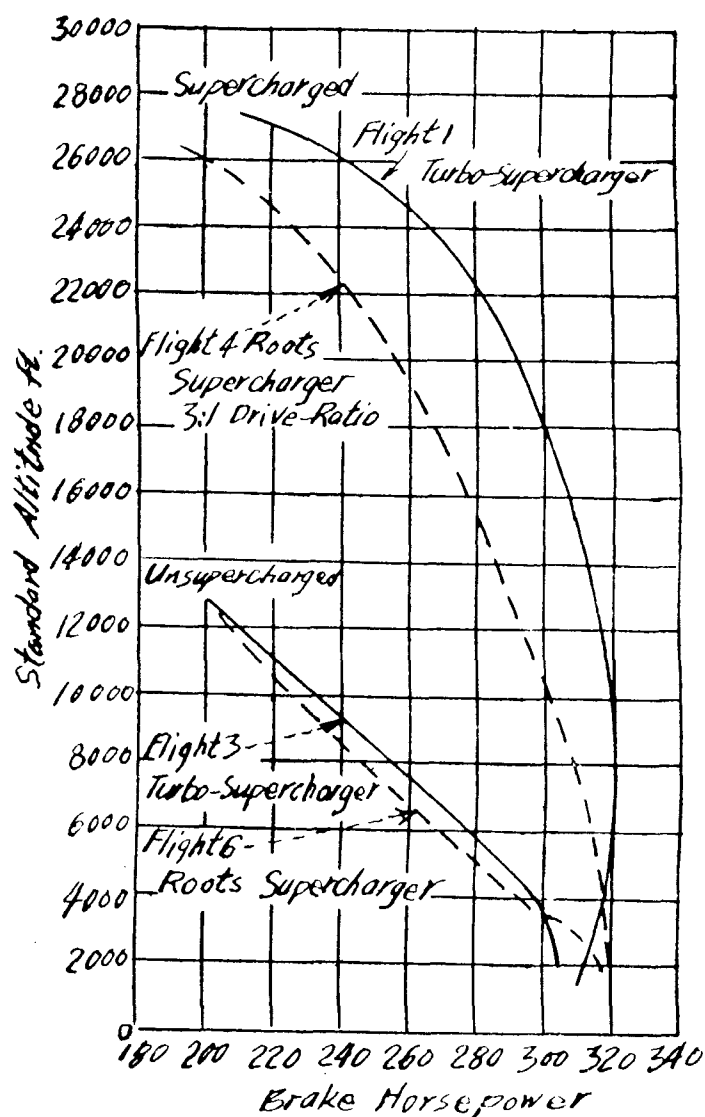 30000
28000
26000
24000
22000
20000
18000
16000
14000
12000
10000
8000
6000
4000
2000
0
Standard Altitude ft.
Supercharged
Flight 1
Turbo-Supercharger
Flight 4 Roots
Supercharger
3:1 Drive-Ratio
Unsupercharged
Flight 3
Turbo-Supercharger
Flight 6
Roots Supercharger
180 200 220 240 260 280 300 320 340
Brake Horsepower